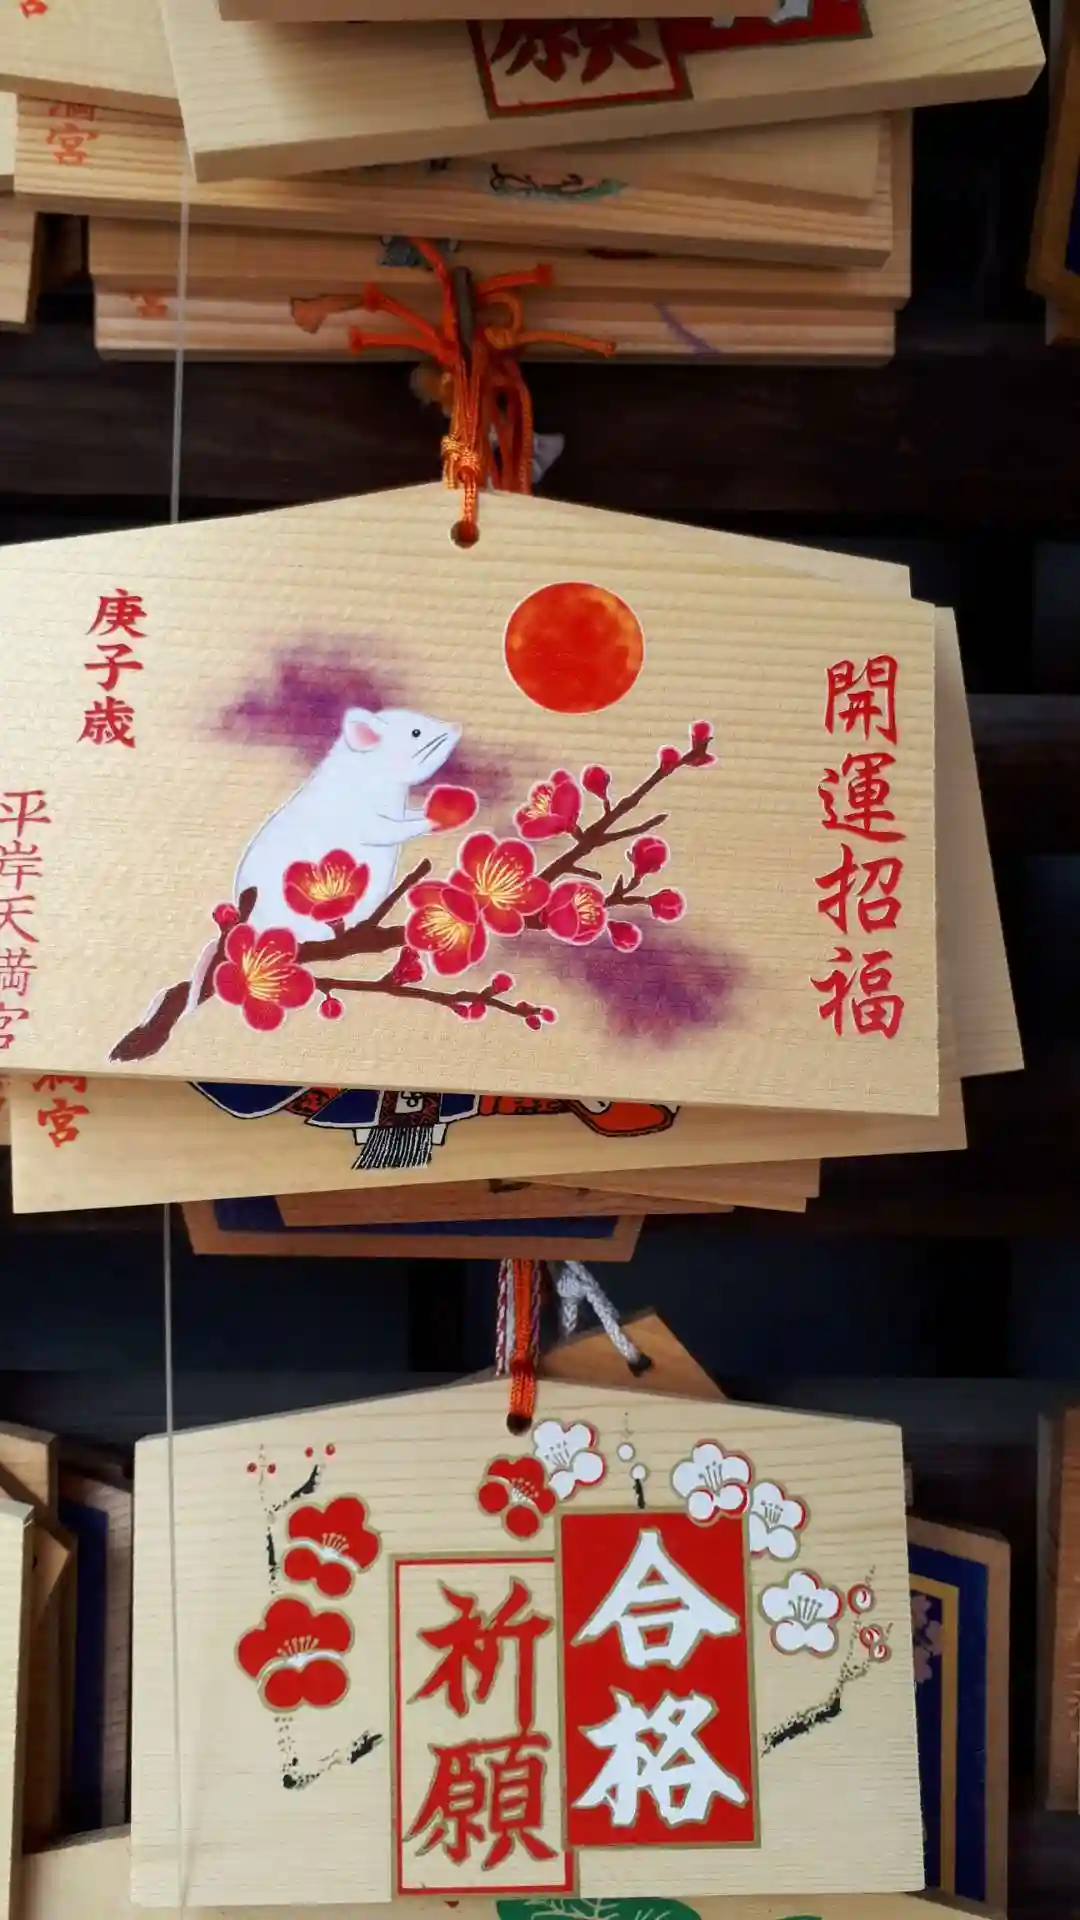 願
満宮
宮
開運招福
庚子歳
平岸天満宮
満宮
合格
祈願